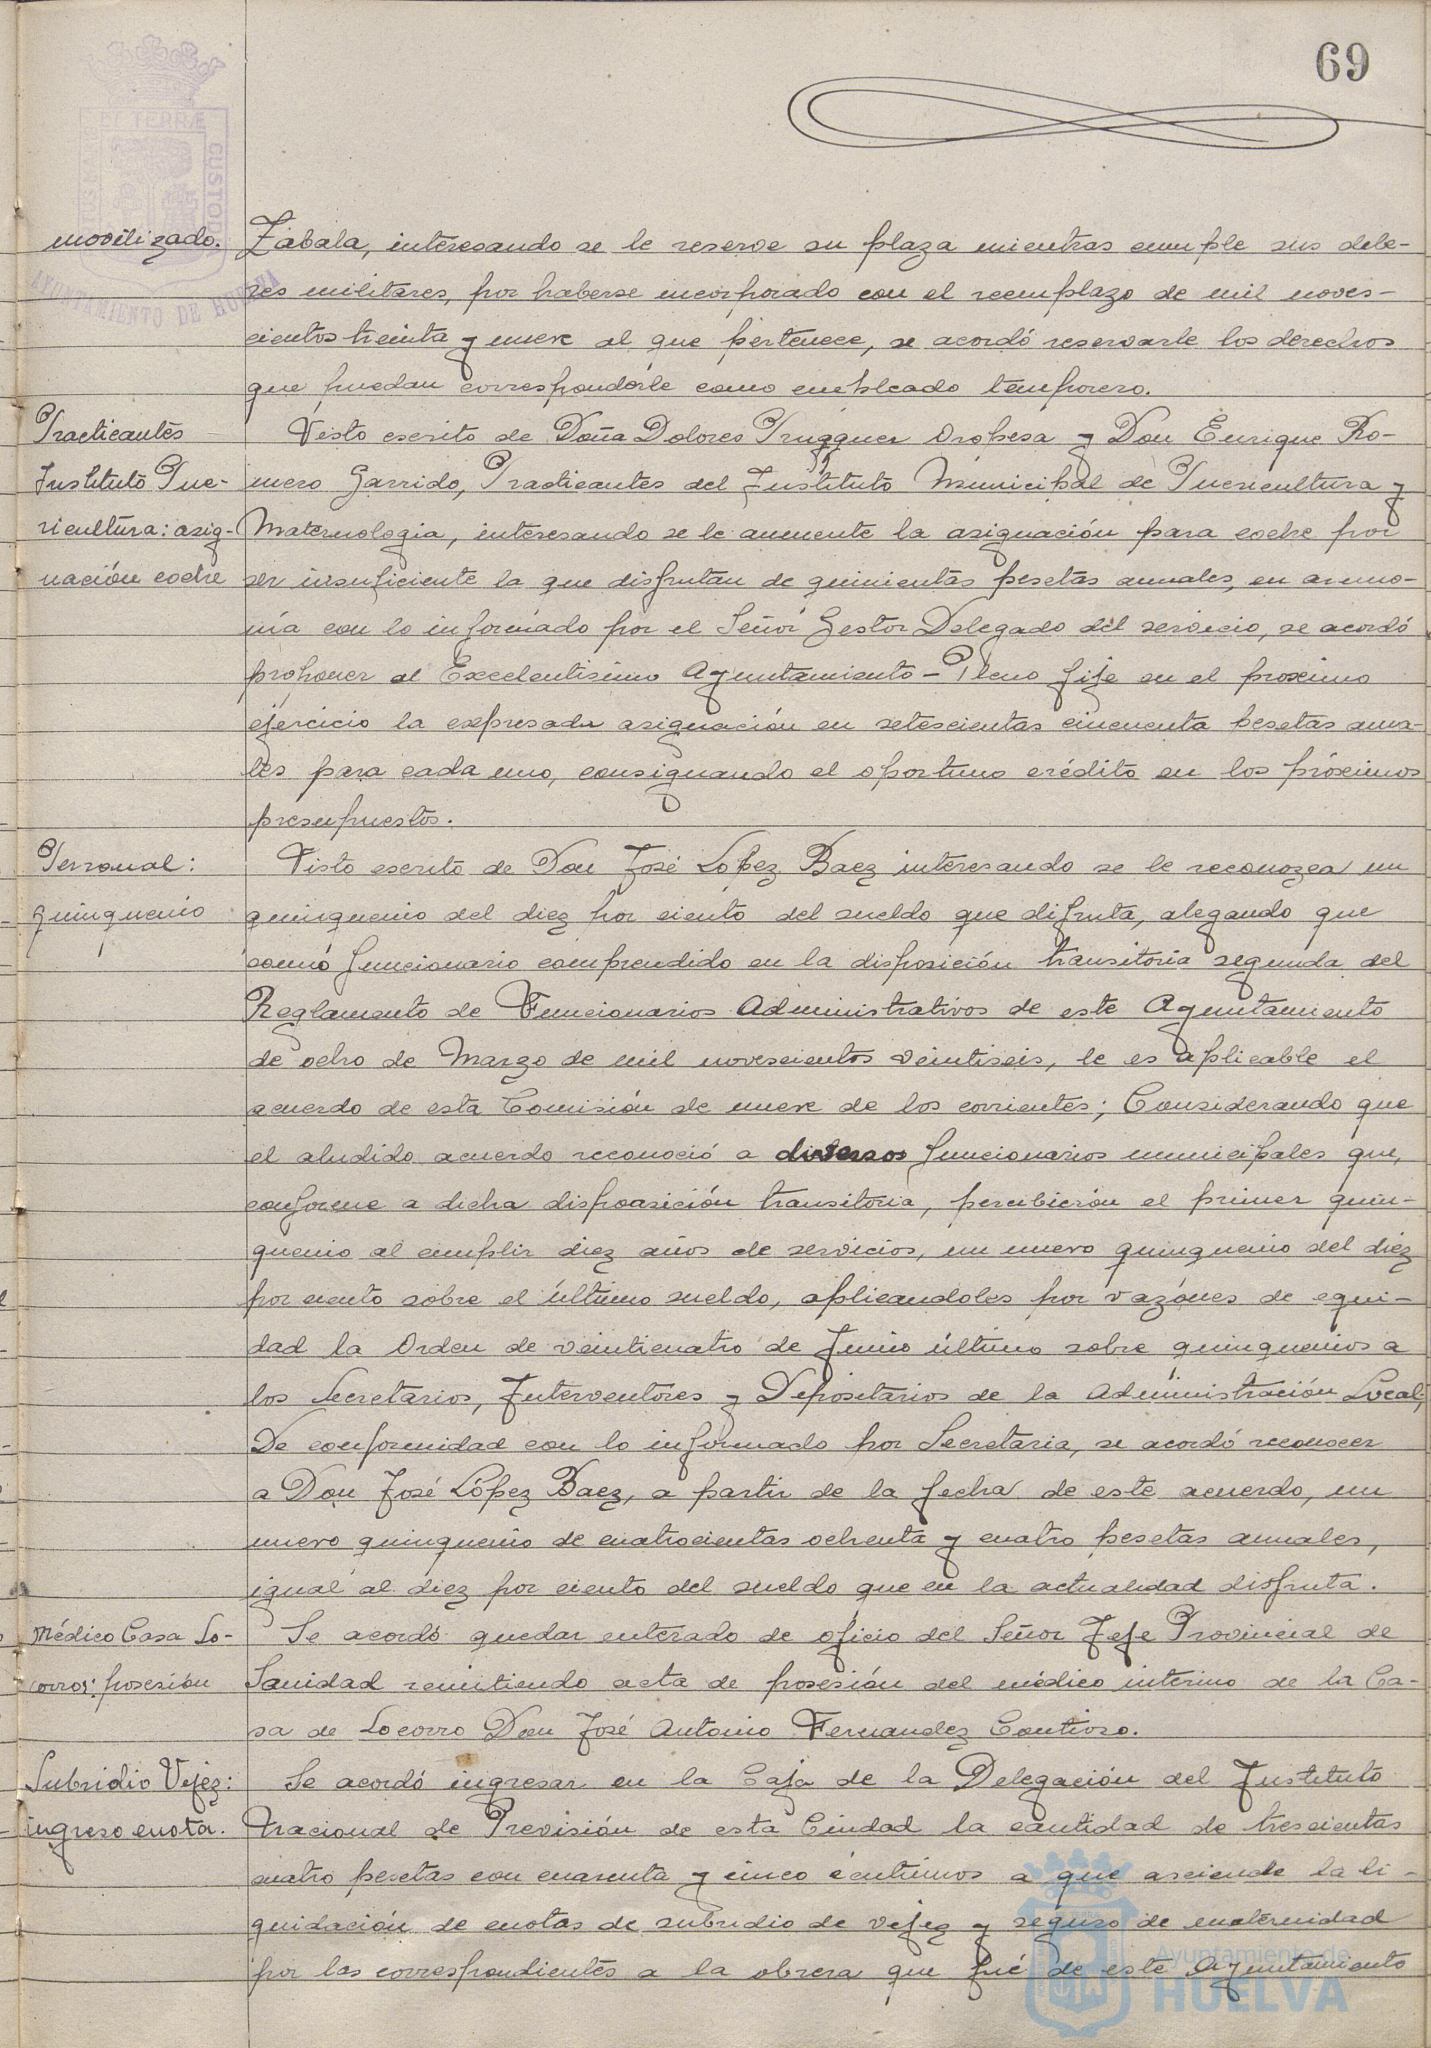 69
PORTUS MARIS ET TERRÆ CUSTODIA
AYUNTAMIENTO DE HUELVA
movilizado.
Zabala, interesando se le reserve su plaza mientras cumple sus debe-
res militares, por haberse incorporado con el reemplazo de mil noves-
cientos treinta y nueve al que pertenece, se acordó reservarle los derechos
que puedan corresponderle como empleado temporero.
Practicantes
Instituto Pue-
ricultura: asig-
nación coche
Visto escrito de Doña Dolores Trugguer Oropesa y Don Enrique Ro-
mero Garrido, Practicantes del Instituto Municipal de Puericultura y
Maternologia, interesando se le aumente la asignación para coche por
ser insuficiente la que disfrutan de quinientas pesetas anuales, en armo-
nía con lo informado por el Señor Gestor Delegado del servicio, se acordó
proponer al Excelentisimo Ayuntamiento-Pleno fije en el proximo
ejercicio la expresada asignación en setescientas cincuenta pesetas anua-
les para cada uno, consignando el oportuno crédito en los próximos
presupuestos.
Personal:
quinquenio
Visto escrito de Don José López Baez interesando se le reconozca un
quinquenio del diez por ciento del sueldo que difruta, alegando que
como funcionario comprendido en la disposición transitoria segunda del
Reglamento de Funcionarios Administrativos de este Ayuntamiento
de ocho de Marzo de mil novescientos veintiseis, le es aplicable el
acuerdo de esta Comisión de nueve de los corrientes; Considerando que
el aludido acuerdo reconoció a diversos funcionarios municipales que,
conforme a dicha disposición transitoria, percibierón el primer quin-
quenio al cumplir diez años de servicios, un nuevo quinquenio del diez
por ciento sobre el último sueldo, aplicandoles por razónes de equi-
dad la Orden de veinticuatro de Junio último sobre quinquenios a
los Secretarios, Interventores y Depositarios de la Administración Local;
De conformidad con lo informado por Secretaria, se acordó reconocer
a Don José López Baez, a partir de la fecha de este acuerdo, un
nuevo quinquenio de cuatrocientas ochenta y cuatro pesetas anuales,
igual al diez por ciento del sueldo que en la actualidad disfruta.
Médico Casa So-
corros: posesión
Se acordó quedar enterado de oficio del Señor Jefe Provincial de
Sanidad remitiendo acta de posesión del médico interino de la Ca-
sa de Socorro Don José Antonio Fernandez Contioso.
Subsidio Vejez:
ingreso cuota.
Se acordó ingresar en la Caja de la Delegación del Instituto
Nacional de Previsión de esta Ciudad la cantidad de trescientas
cuatro pesetas con cuarenta y cinco centimos a que asciende la li-
quidación de cuotas de subsidio de vejez y seguro de maternidad
por las correspondientes a la obrera que fué de este Ayuntamiento
Ayuntamiento de
HUELVA